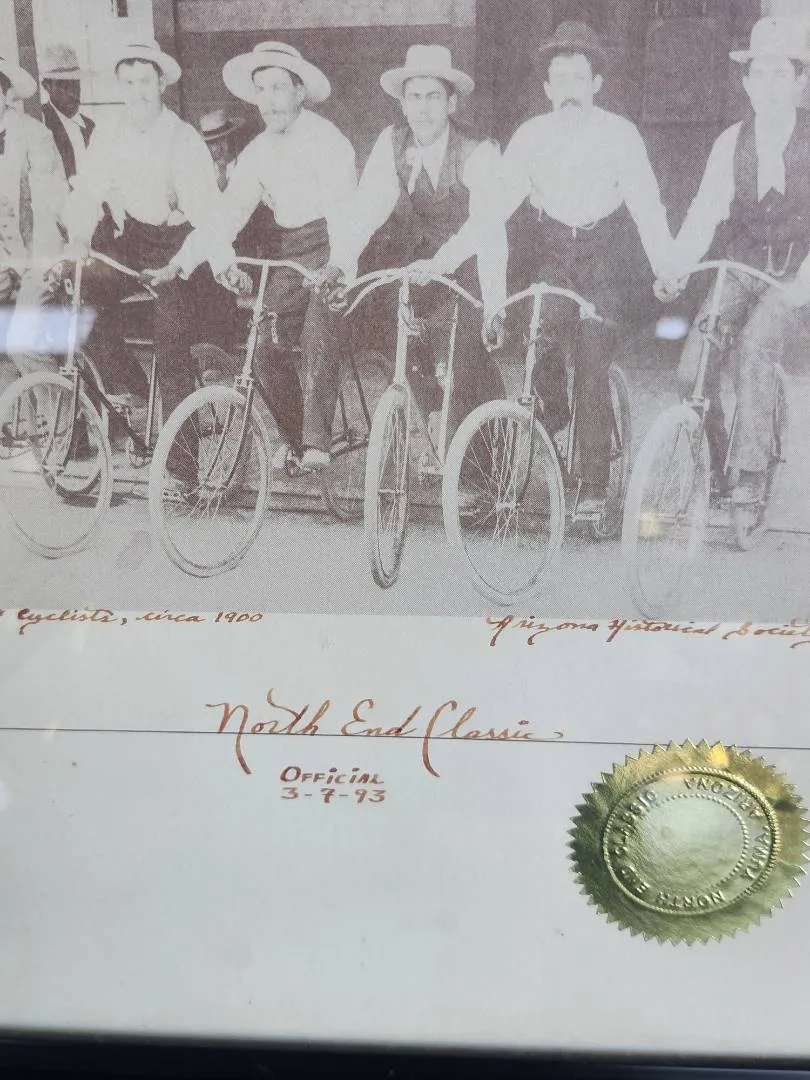 Cyclists, circa 1900
Arizona Historical Society
North End Classic
Official
3-7-93
NORTH END CLASSIC
YUMA ARIZONA